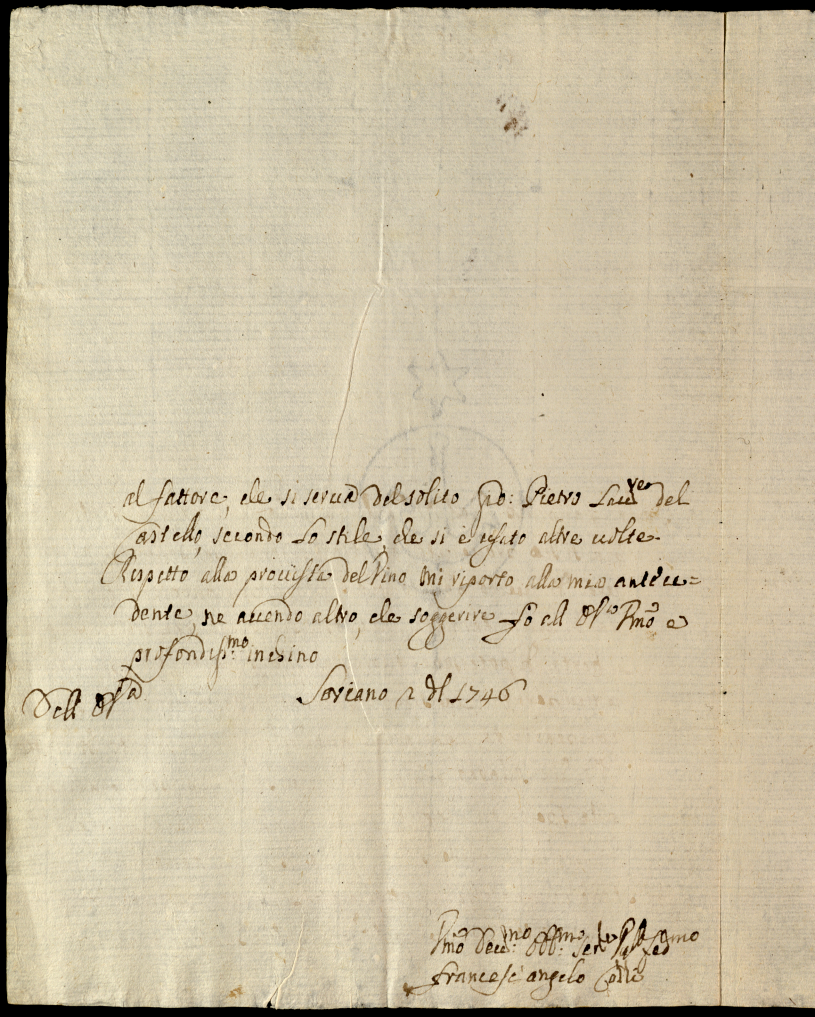 al fattore, che si serva del solito Pietro del
Castello, secondo lo stile, che si è usato altre volte.
Rispetto alla provista del Vino mi riporto alla mia antece=
dente, ne avendo altro, che soggerire fo all' Umo e
profondiss:mo inchino
Dell' Soriano 2 1746
Umo Devmo Obb:mo Serre
Francesc'angelo